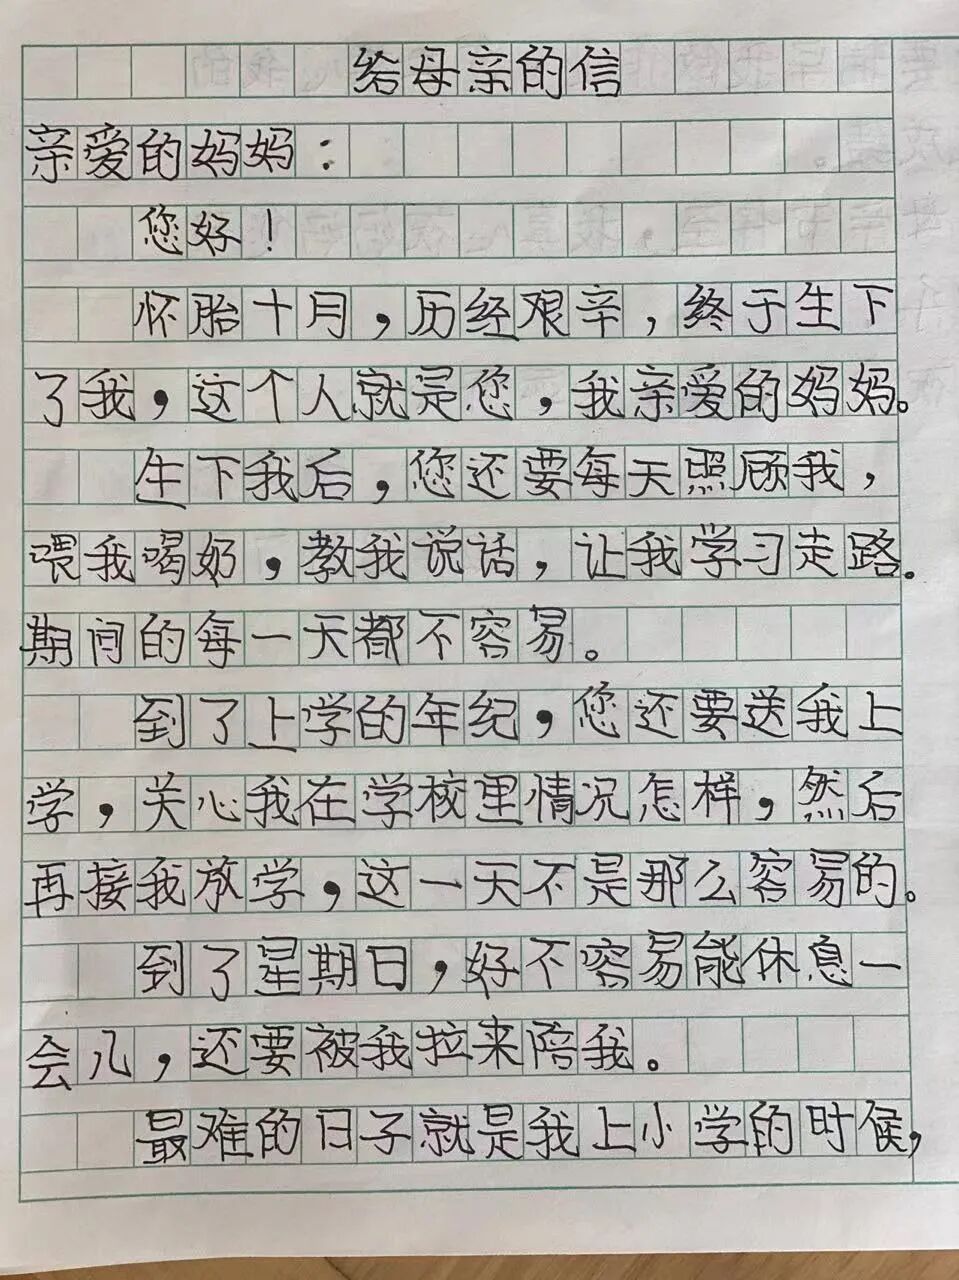 给母亲的信
亲爱的妈妈：
您好！
怀胎十月，历经艰辛，终于生下
了我，这个人就是您，我亲爱的妈妈。
生下我后，您还要每天照顾我，
喂我喝奶，教我说话，让我学习走路。
期间的每一天都不容易。
到了上学的年纪，您还要送我上
学，关心我在学校里情况怎样，然后
再接我放学，这一天不是那么容易的。
到了星期日，好不容易能休息一
会儿，还要被我拉来陪我。
最难的日子就是我上小学的时候，